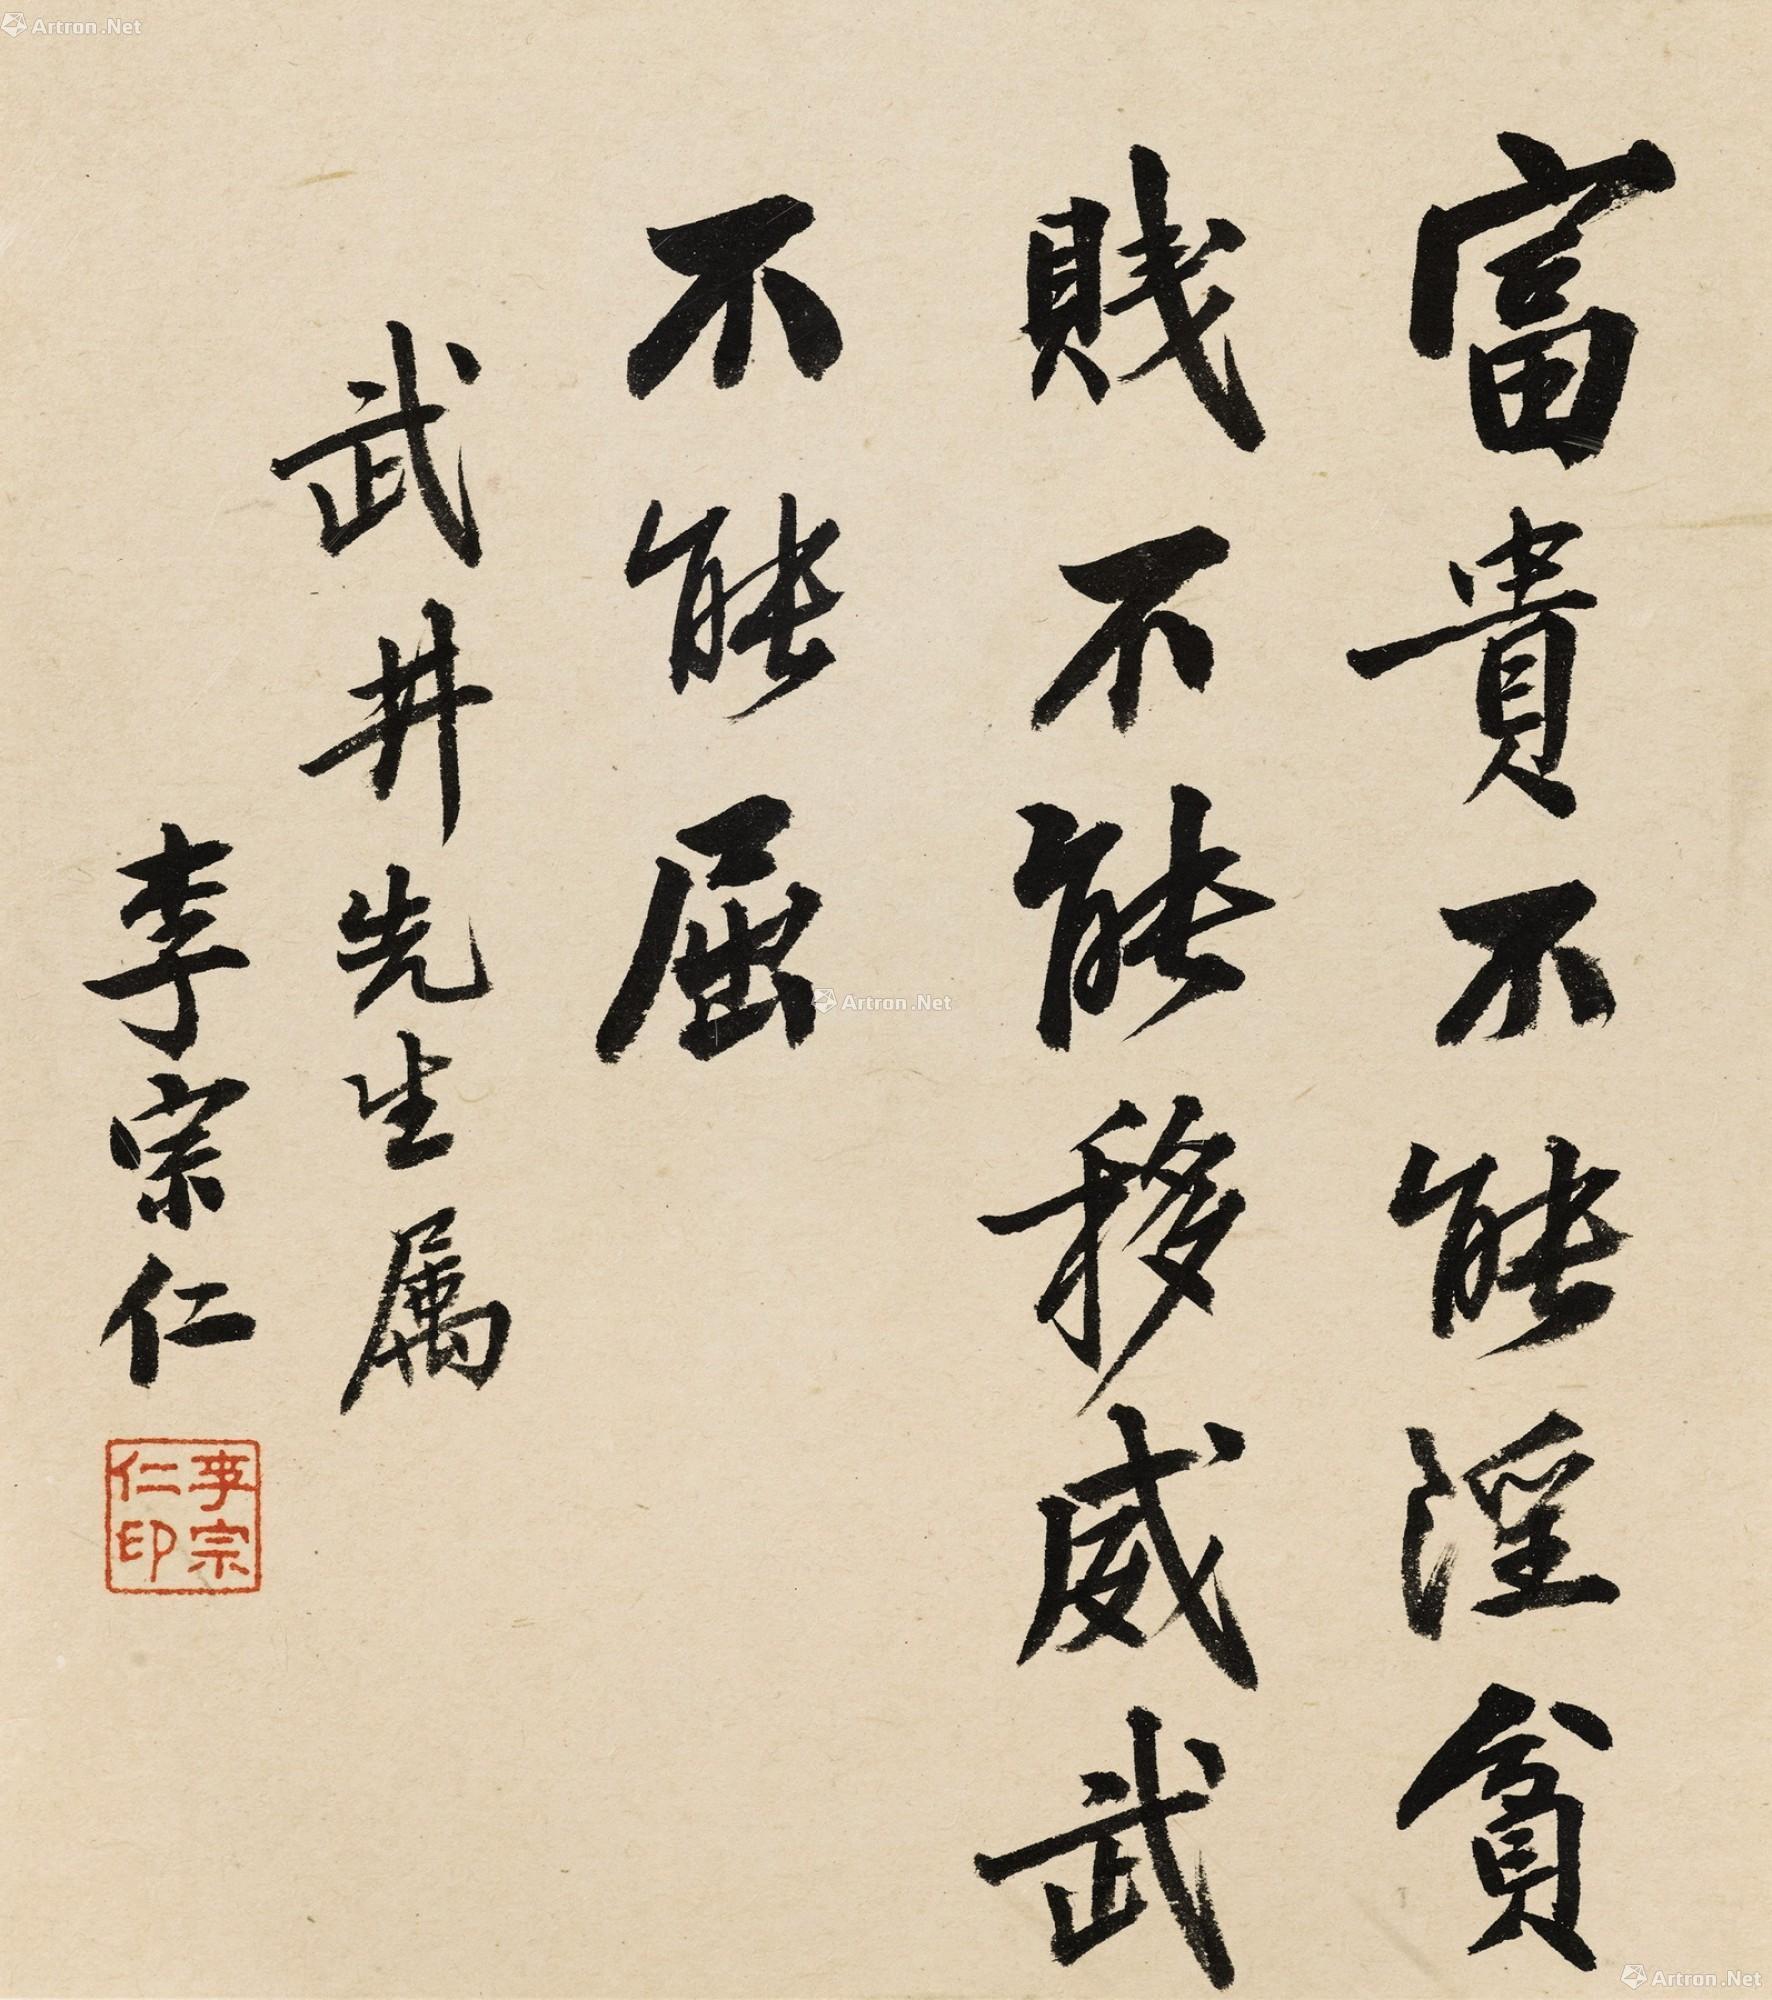 富貴不能淫貧
賤不能移威武
不能屈
武井先生属
李宗仁
李宗
仁印
Artron.Net
Artron.Net
Artron.Net